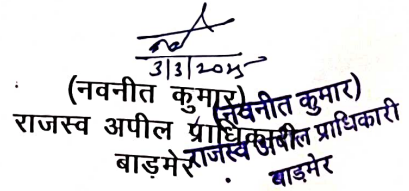 3/3/2025
(नवनीत कुमार)
राजस्व अपील प्राधिकारी
बाड़मेर
(नवनीत कुमार)
राजस्व अपील प्राधिकारी
बाड़मेर